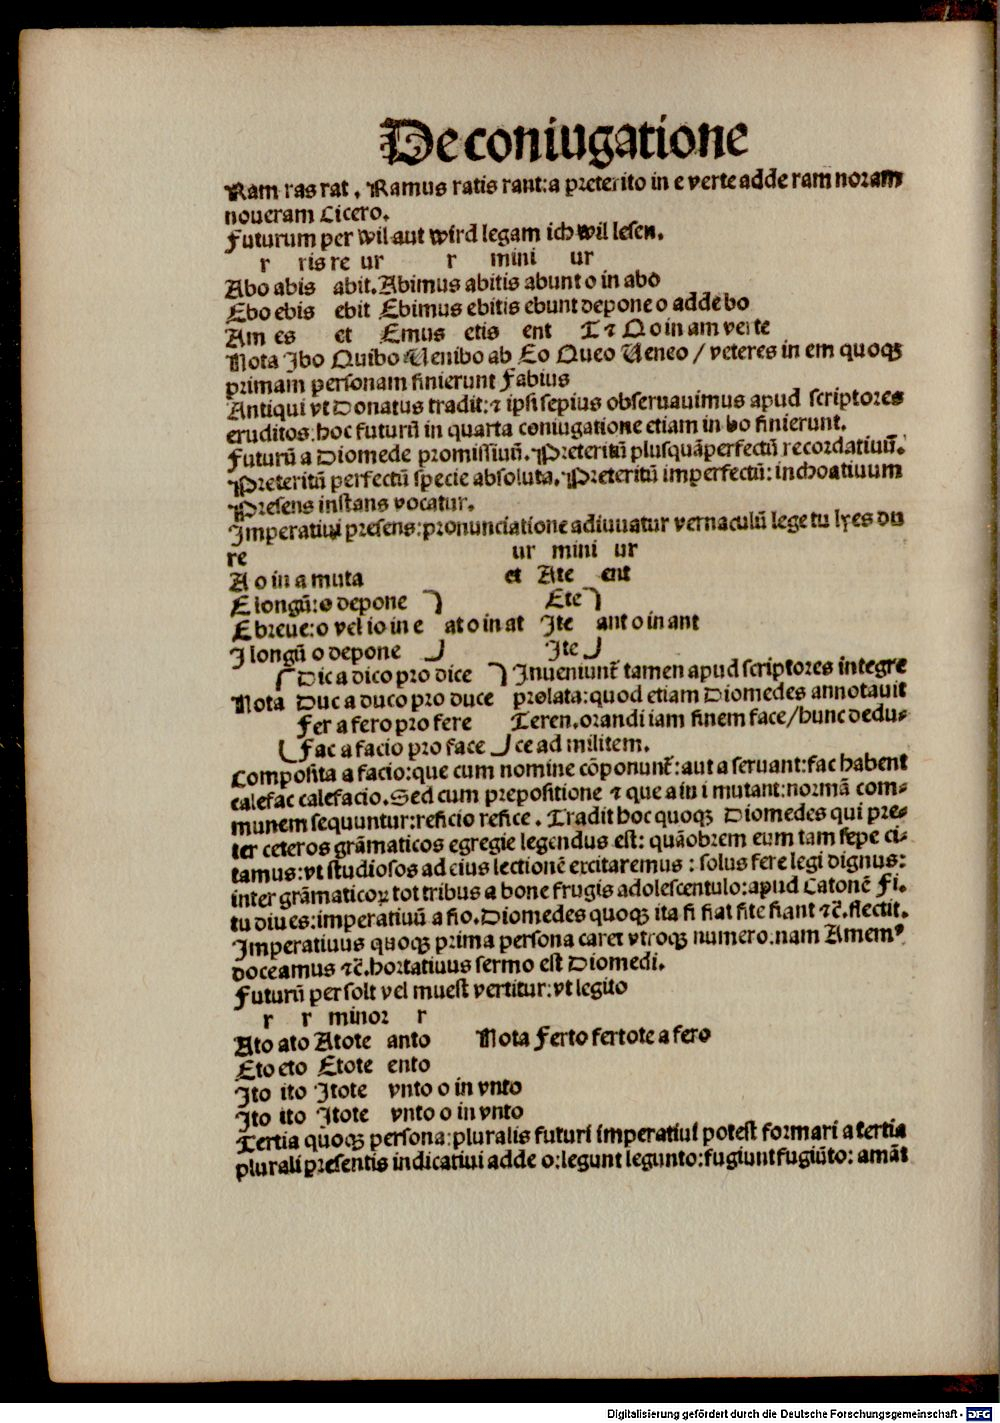 De coniugatione
Ram ras rat. Ramus ratis rant: a preterito in e verte adde ram noram
noueram Cicero.
Futurum per wil aut wird legam ich wil lesen.
r ris re ur r mini ur
Abo abis abit. Abimus abitis abunt o in abo
Ebo ebis ebit Ebimus ebitis ebunt depone o adde bo
Am es et Emus etis ent T ⁊ Q o in am verte
Nota Ibo Quibo Uenibo ab Eo Queo Ueneo / veteres in em quoqꝫ
primam personam finierunt Fabius
Antiqui vt Donatus tradit: ⁊ ipsi sepius obseruauimus apud scriptores
eruditos: hoc futurū in quarta coniugatione etiam in bo finierunt.
Futurū a Diomede promissiuū. Preteritū plusquāperfectū recordatiuū.
Preteritū perfectū specie absoluta. Preteritū imperfectū: inchoatiuum
Presens instans vocatur.
Imperatiui presens: pronunciatione adiuuatur vernaculū lege tu lyes du
re ur mini ur
A o in a muta et Ate ent
E longū: o depone Ete
E breue: o vel io in e at o in at Ite ant o in ant
I longū o depone Ite
Dic a dico pro dice Inueniunt̄ tamen apud scriptores integre
Nota Duc a duco pro duce prolata: quod etiam Diomedes annotauit
Fer a fero pro fere Teren. orandi iam finem face / hunc dedu-
Fac a facio pro face ce ad militem.
Composita a facio: que cum nomine cōponunt̄: aut a seruant: fac habent
calefac calefacio. Sed cum prepositione ⁊ que a in i mutant: normā com-
munem sequuntur: reficio refice. Tradit hoc quoqꝫ Diomedes qui pre-
ter ceteros grāmaticos egregie legendus est: quāobrem eum tam sepe ci-
tamus: vt studiosos ad eius lectionē excitaremus: solus fere legi dignus:
inter grāmaticoꝝ tot tribus a bone frugis adolescentulo: apud Catonē Fi.
tu diu es: imperatiuū a fio. Diomedes quoqꝫ ita fi fiat fite fiant ⁊c̄. flectit.
Imperatiuus quoqꝫ prima persona caret vtroqꝫ numero: nam Amemꝰ
doceamus ⁊c̄. hortatiuus sermo est Diomedi.
Futurū per solt vel muest vertitur: vt legito
r r minor r
Ato ato Atote anto Nota Ferto fertote a fero
Eto eto Etote ento
Ito ito Itote vnto o in vnto
Ito ito Itote vnto o in vnto
Tertia quoqꝫ persona: pluralis futuri imperatiui potest formari a tertia
plurali presentis indicatiui adde o: legunt legunto: fugiunt fugiūto: amāt
Digitalisierung gefördert durch die Deutsche Forschungsgemeinschaft - DFG